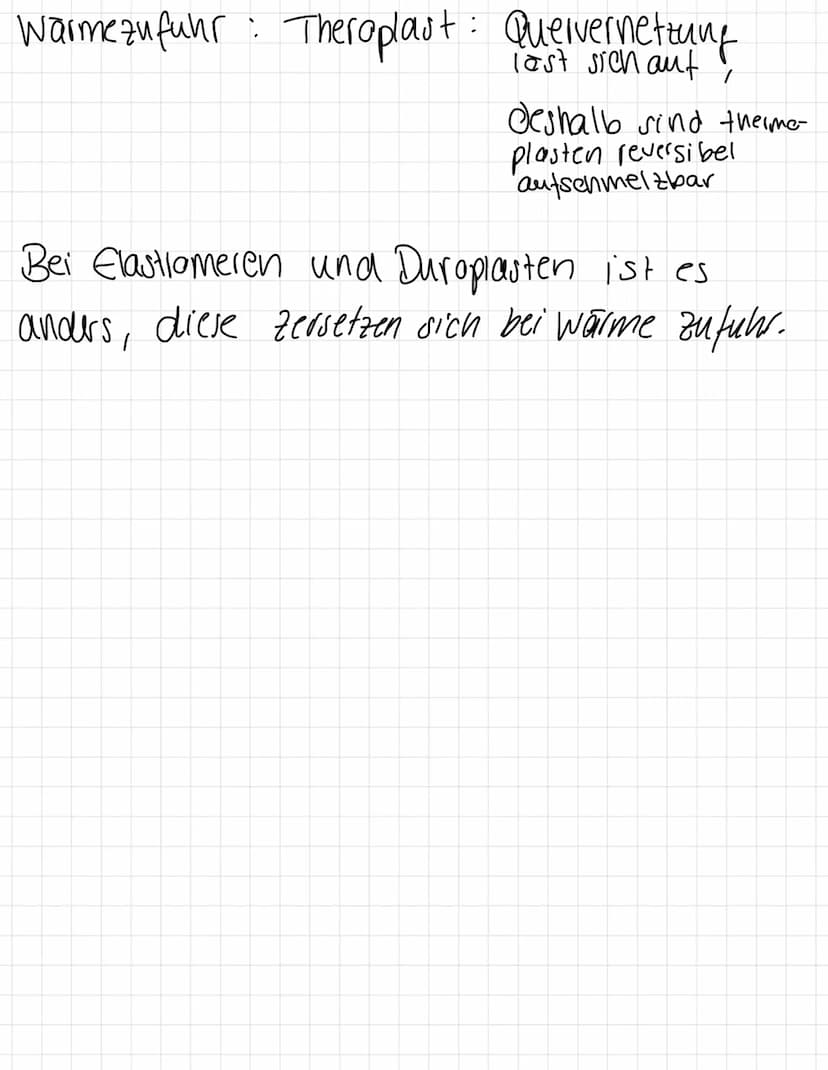 Wärmezufuhr : Theroplast : Quervernetzung
löst sich auf,
deshalb sind thermo-
plasten reversibel
aufschmelzbar
Bei Elastomeren und Duroplasten ist es
anders, diese zersetzen sich bei Wärme zufuhr.